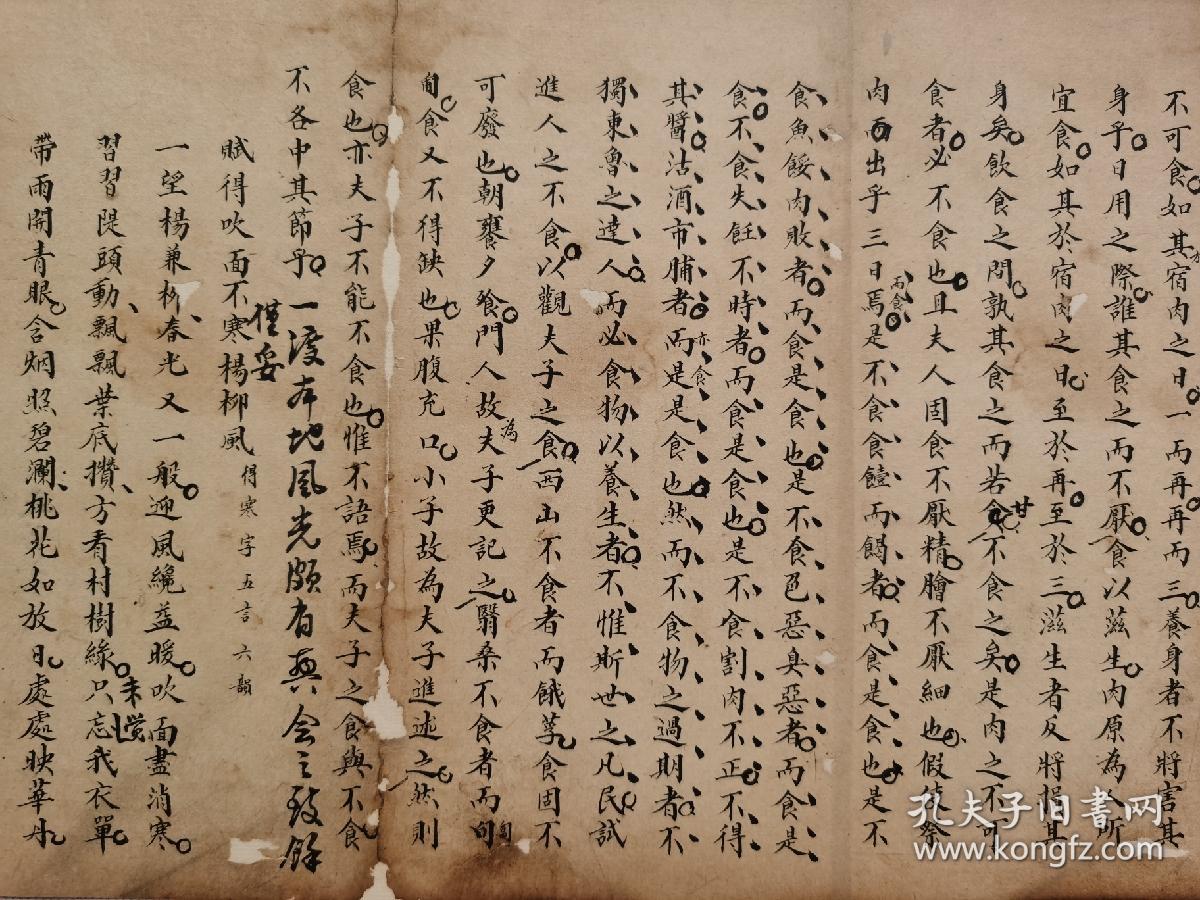 不可食如其宿肉之日一而再再而三養身者不將害其
身乎日用之際誰其食之而不厭食以滋生肉原為人所
宜食如其於宿肉之日至於再至於三滋生者反將損其
身矣飲食之間孰其食之而若甘不食之矣是肉之不可
食者必不食也且夫人固食不厭精膾不厭細也假使祭
肉而出乎三日焉是不食食饐而餲者而食是食也是不
而食
食魚餒肉敗者而食是食也是不食色惡臭惡者而食是
食不食失飪不時者而食是食也是不食割肉不正不得
其醬沽酒市脯者而是是食也然而不食物之過期者不
亦食
獨東魯之達人而必食物以養生者不惟斯世之凡民試
進人之不食以觀夫子之食西山不食者而餓莩食固不
可廢也朝饔夕飱門人故夫子更記之翳桑不食者而匍
為
匐食又不得缺也果腹充口小子故為夫子進述之然則
食也亦夫子不能不食也惟不語焉而夫子之食與不食
不各中其節乎
一渡本地風光頗有興會之致餘
僅妥
賦得吹面不寒楊柳風 得寒字五言六韻
一望楊兼柳春光又一般迎風纔益暖吹面盡消寒
習習隄頭動飄飄葉底攢方看村樹綠只忘我衣單
未覺
帶雨開青眼含烟照碧瀾桃花如放日處處映華丹
孔夫子旧书网
www.kongfz.com